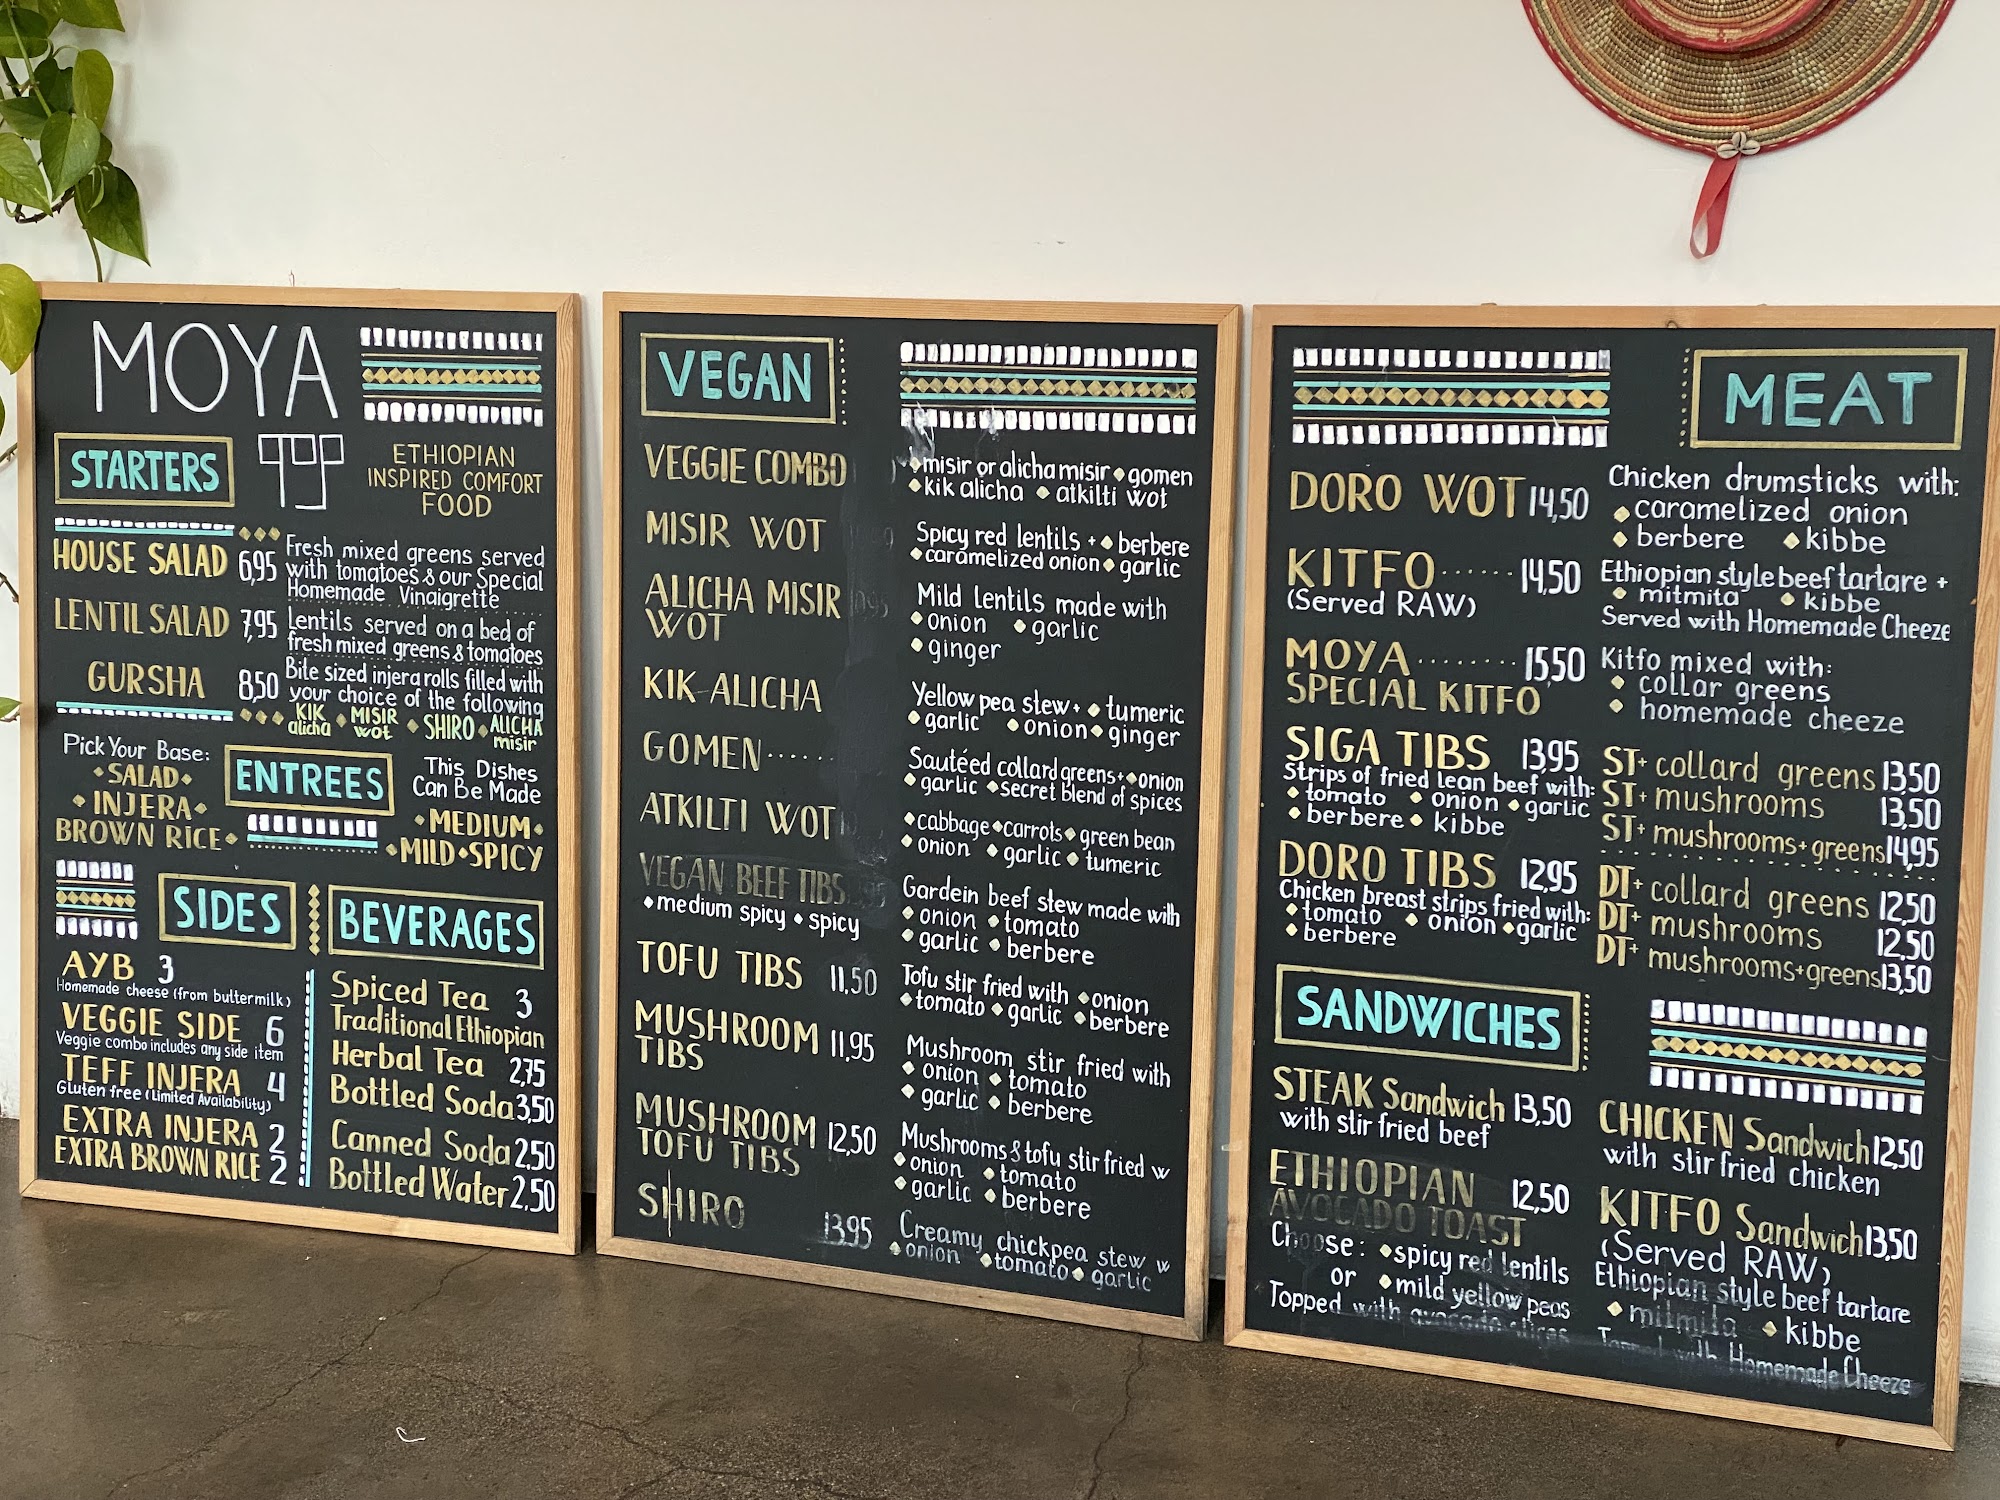 MOYA
ETHIOPIAN
INSPIRED COMFORT
FOOD
STARTERS
HOUSE SALAD 6,95 Fresh mixed greens served
with tomatoes & our Special
Homemade Vinaigrette
LENTIL SALAD 7,95 Lentils served on a bed of
fresh mixed greens & tomatoes
GURSHA 8,50 Bite sized injera rolls filled with
your choice of the following
KIK alicha MISIR wot SHIRO ALICHA misir
Pick Your Base:
SALAD
INJERA
BROWN RICE
ENTREES
This Dishes
Can Be Made
MEDIUM
MILD SPICY
SIDES
AYB 3
Homemade cheese (from buttermilk)
VEGGIE SIDE 6
Veggie combo includes any side item
TEFF INJERA 4
Gluten free (Limited Availability)
EXTRA INJERA 2
EXTRA BROWN RICE 2
BEVERAGES
Spiced Tea 3
Traditional Ethiopian
Herbal Tea 2,75
Bottled Soda 3,50
Canned Soda 2,50
Bottled Water 2,50
VEGAN
VEGGIE COMBO misir or alicha misir gomen
kik alicha atkilti wot
MISIR WOT Spicy red lentils + berbere
caramelized onion garlic
ALICHA MISIR Mild lentils made with
WOT onion garlic
ginger
KIK ALICHA Yellow pea stew + tumeric
garlic onion ginger
GOMEN...... Sautéed collard greens + onion
garlic secret blend of spices
ATKILTI WOT cabbage carrots green bean
onion garlic tumeric
VEGAN BEEF TIBS Gardein beef stew made with
medium spicy spicy onion tomato
garlic berbere
TOFU TIBS 11,50 Tofu stir fried with onion
tomato garlic berbere
MUSHROOM 11,95 Mushroom stir fried with
TIBS onion tomato
garlic berbere
MUSHROOM 12,50 Mushrooms & tofu stir fried w
TOFU TIBS onion tomato
garlic berbere
SHIRO 13,95 Creamy chickpea stew w
onion tomato garlic
MEAT
DORO WOT 14,50 Chicken drumsticks with:
caramelized onion
berbere kibbe
KITFO...... 14,50 Ethiopian style beef tartare +
(Served RAW) mitmita kibbe
Served with Homemade Cheeze
MOYA....... 15,50 Kitfo mixed with:
SPECIAL KITFO collar greens
homemade cheeze
SIGA TIBS 13,95
Strips of fried lean beef with:
tomato onion garlic
berbere kibbe
ST + collard greens 13,50
ST + mushrooms 13,50
ST + mushrooms + greens 14,95
DORO TIBS 12,95
Chicken breast strips fried with:
tomato onion garlic
berbere
DT + collard greens 12,50
DT + mushrooms 12,50
DT + mushrooms + greens 13,50
SANDWICHES
STEAK Sandwich 13,50
with stir fried beef
ETHIOPIAN 12,50
AVOCADO TOAST
Choose: spicy red lentils
or mild yellow peas
Topped with avocado slices
CHICKEN Sandwich 12,50
with stir fried chicken
KITFO Sandwich 13,50
(Served RAW)
Ethiopian style beef tartare
mitmita kibbe
Topped with Homemade Cheeze